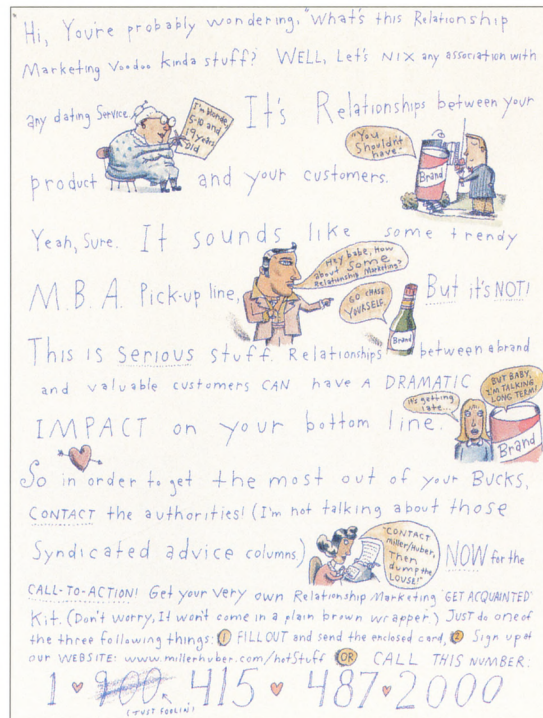 Hi, You're probably wondering, "What's this Relationship
Marketing Voodoo kinda stuff? WELL, Let's NIX any association with
any dating Service.
I'm blonde,
5-10 and
19 years
old
It's Relationships between your
"You
Shouldn't
have."
Brand
product and your customers.
Yeah, Sure. It sounds like some trendy
Hey babe, How
about some
Relationship Marketing?
M.B.A. Pick-up line,
GO CHASE
YOURSELF.
Brand
But it's NOT!
This is Serious stuff. Relationships between a brand
and valuable customers CAN have A DRAMATIC
It's getting
late...
BUT BABY,
I'M TALKING
LONG TERM!
Brand
IMPACT on your bottom line.
So in order to get the most out of your BUCKS,
CONTACT the authorities! (I'm not talking about those
Syndicated advice columns.)
"CONTACT
miller/Huber,
Then
dump the
LOUSE!"
NOW for the
CALL-TO-ACTION! Get your very own Relationship Marketing "GET ACQUAINTED"
Kit. (Don't worry, It won't come in a plain brown wrapper) Just do one of
the three following things: 1 FILL OUT and send the enclosed card, 2 Sign up at
our WEBSITE: www.millerhuber.com/hotstuff OR CALL THIS NUMBER:
1 900 415 487 2000
(JUST FOOLIN')